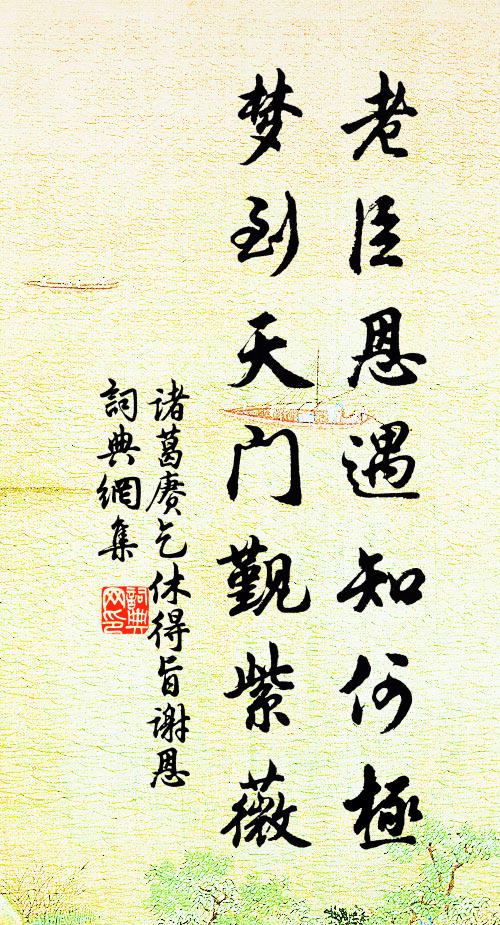 老臣恩遇知何極
梦到天门觐紫薇
诸葛赓乞休得旨谢恩
詞典網集
詞典
网印